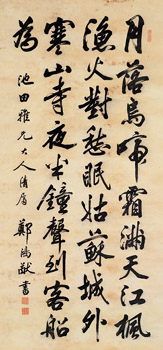 月落烏啼霜滿天江楓
漁火對愁眠姑蘇城外
寒山寺夜半鐘聲到客船
為
池田雅兄大人清屬
鄭鴻猷書